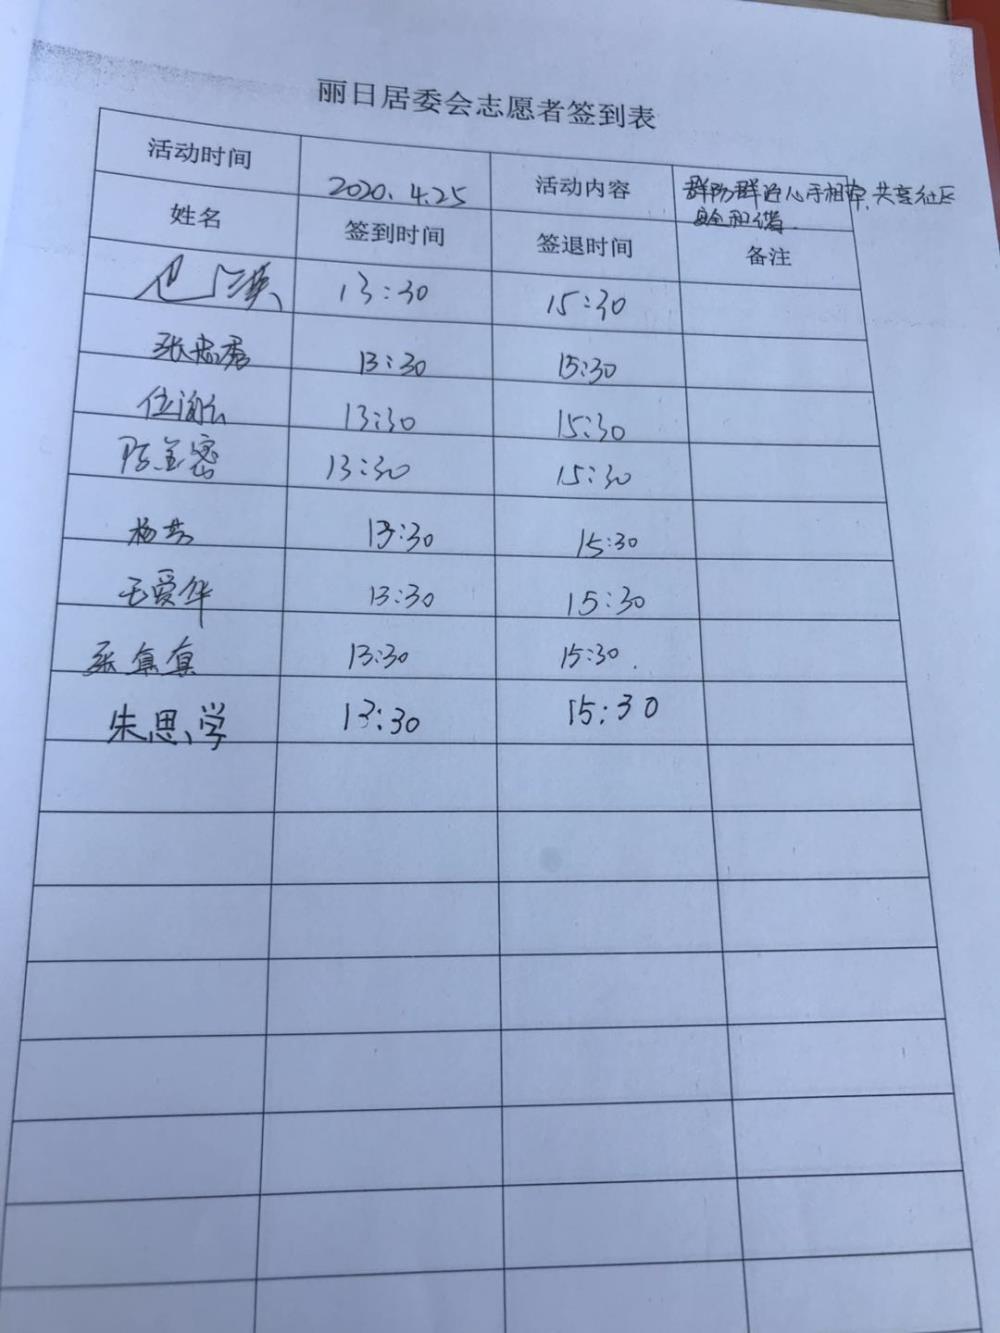 丽日居委会志愿者签到表
活动时间 2020.4.25 活动内容 群防群治心手相牵,共享社区
安全和谐.
姓名 签到时间 签退时间 备注
13:30 15:30
张忠秀 13:30 15:30
13:30 15:30
陈金密 13:30 15:30
杨芳 13:30 15:30
王爱华 13:30 15:30
张真真 13:30 15:30.
朱思学 13:30 15:30